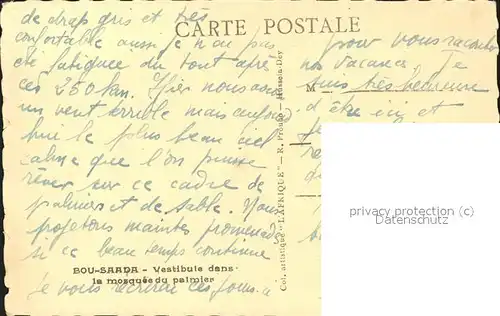 de drap gris et très
confortable aussi je n'ai pas
été fatiguée du tout après
ces 250 km. Hier nous avions
un vent terrible mais aujour-
hui le plus beau ciel
calme que l'on puisse
rêver sur ce cadre de
palmiers et de sable. Nous
projetons maintes promenades
si ce beau temps continue
BOU-SAADA - Vestibule dans
la mosquée du palmier
je vous écrirai ces jours-ci
CARTE POSTALE
pour vous raconter
nos vacances. Je
M
suis très heureuse
d'être ici et
Col. artistique "L'AFRIQUE" - R. Prouho - Hussein-Dey
privacy protection (GDPR)
Datenschutz